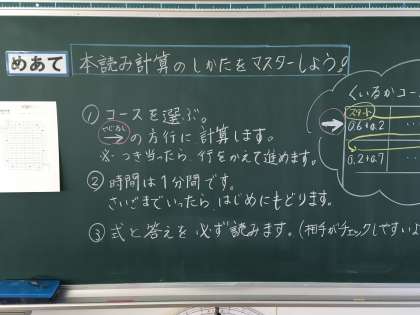 めあて 本読み計算のしかたをマスターしよう!
① コースを選ぶ。
やじるし
→の方行に計算します。
※つき当ったら、行をかえて進めます。
② 時間は1分間です。
さいごまでいったら、はじめにもどります。
③ 式と答えを必ず読みます。(相手がチェックしやすいよ
くいるかコー
スタート
0.6+0.2
0.2+0.7